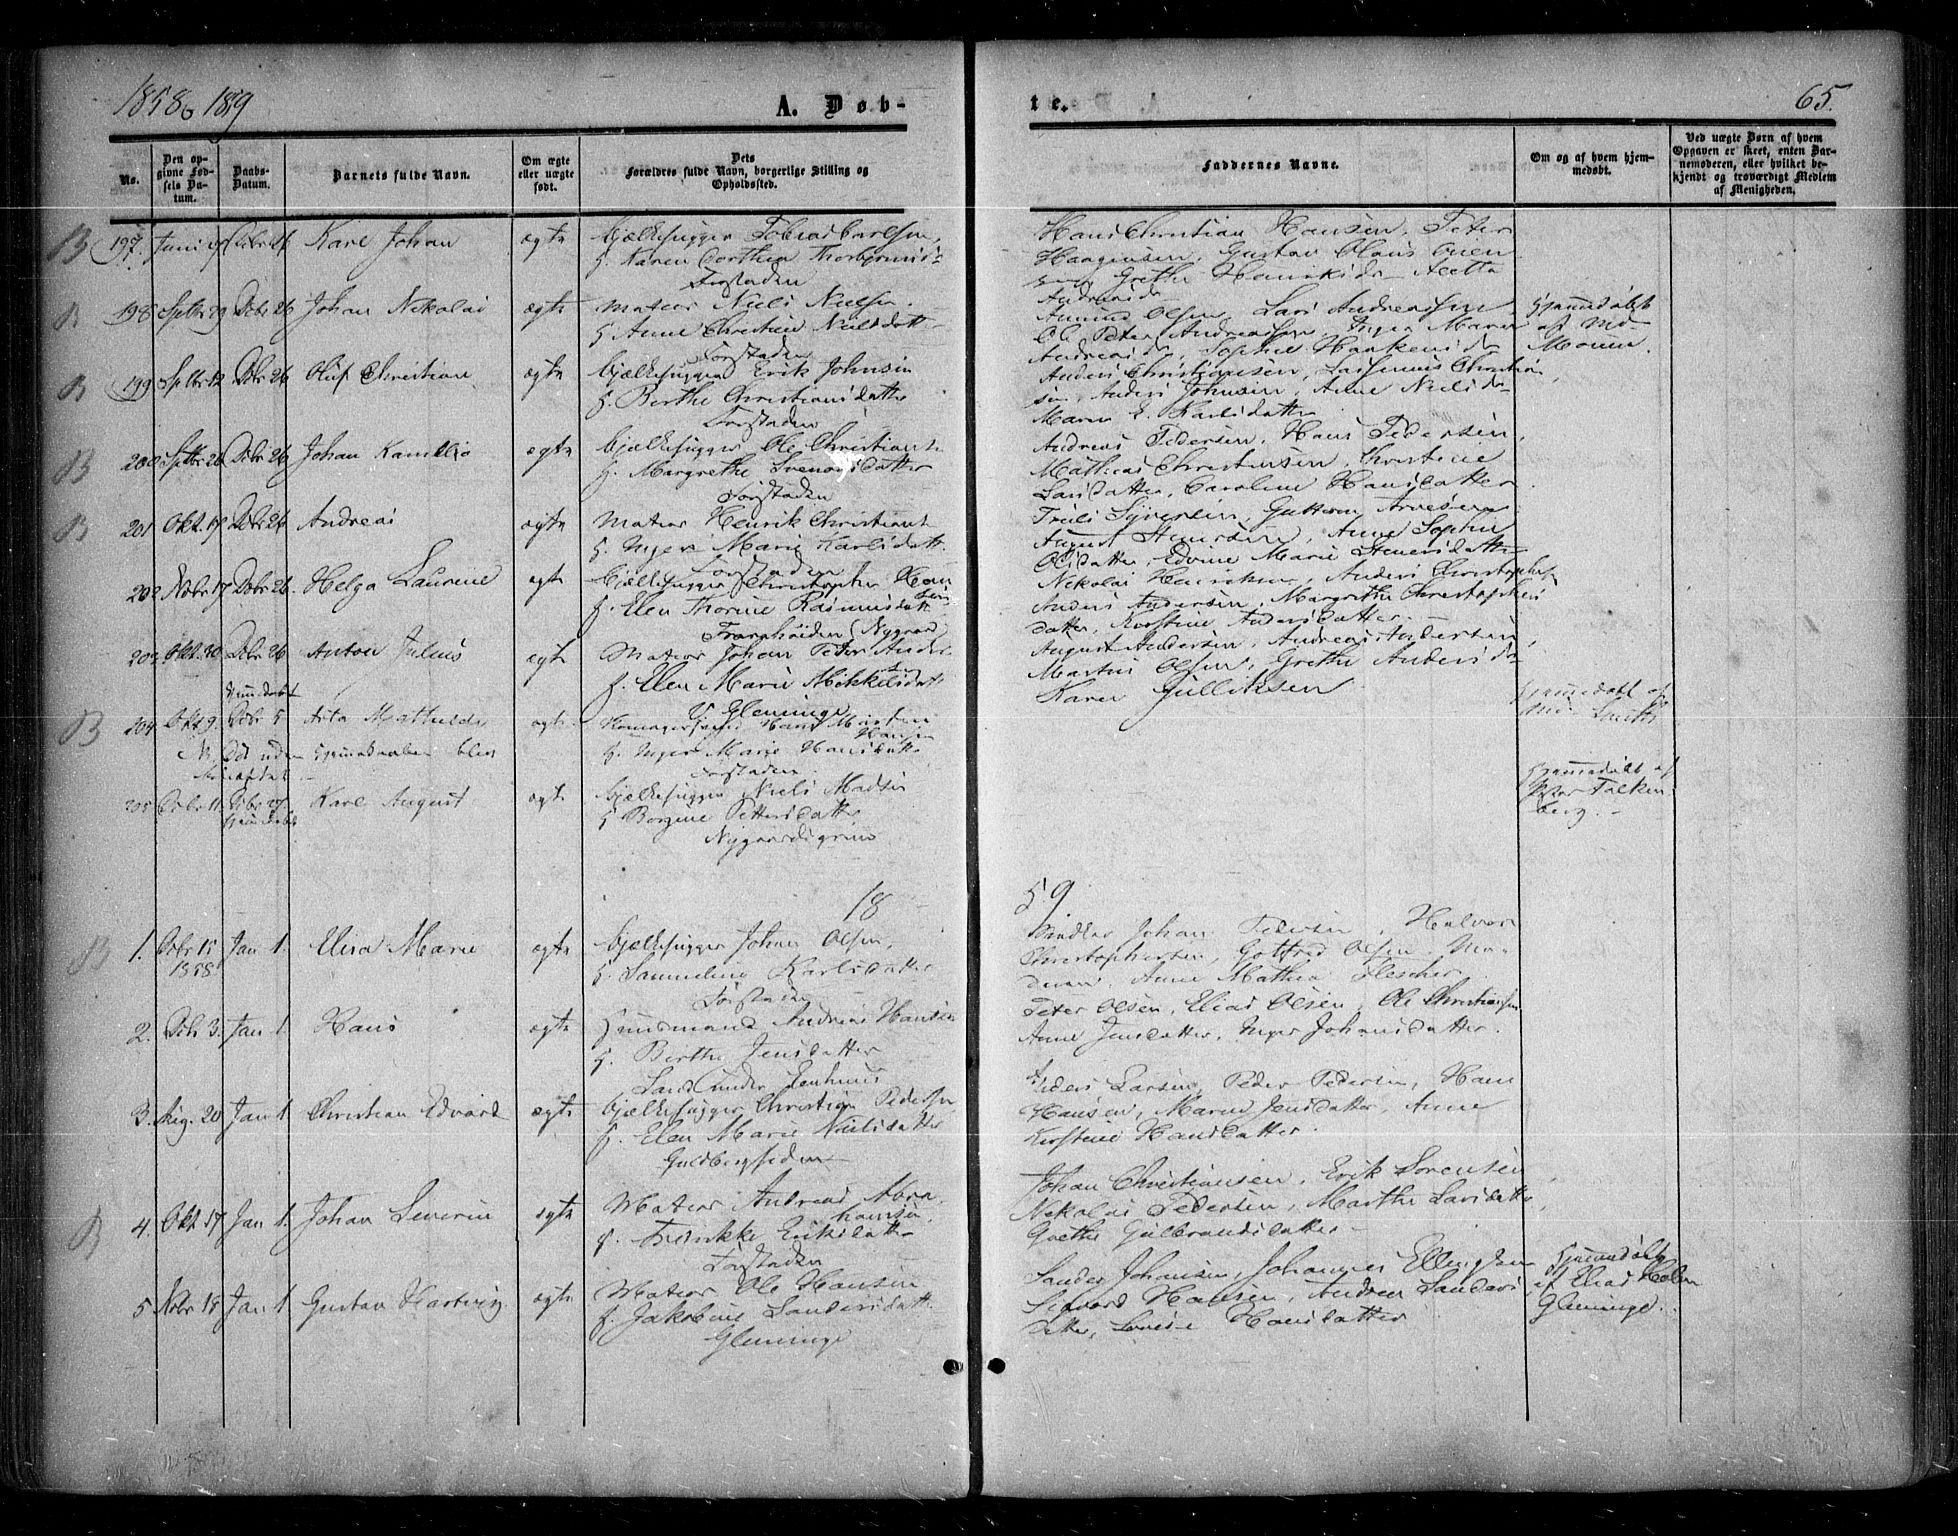 1858 o 1859
A. Døb-
te.
65.
No.
Den opgivne Fødsels Datum.
Daabs-Datum.
Barnets fulde Navn.
Om ægte eller uægte født.
Dets Forældres fulde Navn, borgerlige Stilling og Opholdssted.
Faddernes Navne.
Om og af hvem hjemmedøbt.
Ved uægte Børn af hvem Opgaven er skeet, enten Barnemoderen, eller hvilket bekjendt og troværdigt Medlem af Menigheden.
B 197. Juni Dcbr 26 Karl Johan ægte Bjælkehugger Carlsen,
f. Karen Dorthea
Forstaden
Hans Christian Hansen, Peter
Haagensen, Gustav Olaus
Grethe Alette
Andreasd.
B 198 Sptbr 29 Dcbr 26 Johan Nikolai ægte Matros Niels Nielsen
f. Anne Christine Nielsdatt
Forstaden
Amund Olsen, Lars Andreassen
Ole Peter Andreassen, Inger Maren
Andreasd, Sophie Haakensd
Hjemmedøbt
af Md
B 199 Sptbr 12 Dcbr 26 Oluf Christian ægte Bjælkehugger Erik Johnsen
f. Berthe Christiansdatter
Forstaden
Anders Christiansen, Christian
sen, Anders Johnsen, Anne Nielsd
Maren E. Karlsdatter
B 200 Sptbr 26 Dcbr 26 Johan Kamillo ægte Bjælkehugger Ole Christians
f. Margrethe Svensdatter
Forstaden
Andreas Pedersen, Hans Pedersen,
Mathias Christensen, Christine
Larsdatter, Caroline Hansdatter
B 201 Okt. 17 Dcbr 26 Andreas ægte Matros Henrik Christians
f. Inger Marie Karlsdatt.
Forstaden
Truls Syversen, Guttorm Arnesen
August Stenersen, Anne Sophie
Olsdatter, Edvine Marie Stenersdatt
202 Nobr 17 Dcbr 26. Helga Laurine ægte Bjælkehugger Christopher Han
sen
f. Elen Thorine Rasmusdatt
(Nygaard)
Nikolai Henriksen, Anders Christophers
Anders Andersen, Margrethe Christophers
datter, Kirstine Andersdatter
203 Okt. 30 Dcbr 26 Anton Julius ægte Matros Johan Peter Anders
f. Elen Marie Mikkelsdatt
V Gleminge
August Andersen, Andreas Andersen
Martin Olsen, Grethe Andersd
Karen Gulliksen
B 204 Okt 9. Hjemdøbt Dcbr 5 Asta Mathilde ægte Hans Morten
Hansen
f. Inger Marie Hansdatt
Forstaden
N. Død uden Hjemmedaaben blev
Hjemmedøbt af
Md. Smith
205 Dcbr 11 Dcbr 27. Hjemdøbt Karl August ægte Bjælkehugger Niels Madsen
f. Borgine Pettersdatter
Nygaardsgrind
Hjemmedøbt af
Falken
berg.
18
59
B 1. Dcbr 15 1858 Jan 1. Elisa Marie ægte Bjælkehugger Johan Olsen,
f. Samueline Karlsdatter
Forstaden
Johan Pedersen, Halvor
Christophersen, Gotfred Olsen, Ma-
Anne Mathea Flescher
2. Dcbr 3. Jan 1. Hans ægte Huusmand Andreas Hansen
f. Berthe Jensdatter
Sand under Evenhuus
Peter Olsen, Elias Olsen, Ole Christiansen
Anne Jensdatter, Inger Johansdatter.
3. Aug. 20 Jan 1. Christian Edvard ægte Bjælkehugger Christian Pedersen
f. Elen Marie Nielsdatter
Guldbergsiden
Anders Larsen, Peder Pedersen, Hans
Hansen, Maren Jensdatter, Anne
Kirstine Hansdatter.
B 4. Okt 17 Jan 1. Johan Severin ægte Matros Andreas Abra
hamsen,
f. Fredrikke Eriksdatter
Forstaden
Johan Christiansen, Erik Sorensen
Nikolai Pedersen, Marthe Larsdatter,
Grethe Gulbrandsdatter
5 Nobr 15 Jan 1 Gustav Hartvig ægte Matros Ole Hansen
f. Jakobine Sandersdatt.
Gleminge
Sander Johansen, Johannes Ellingsen
Sigvard Hansen, Andrea Sanders
datter, Lovise Hansdatter
Hjemmedøbt
af Elias Holm
Gleminge.